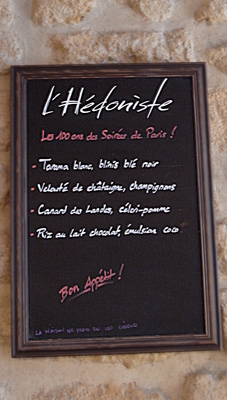 L'Hédoniste
Les 100 ans des Soirées de Paris !
- Tarama blanc, blinis blé noir
- Velouté de châtaigne, champignons
- Canard des Landes, céleri-pomme
- Riz au lait chocolat, émulsion coco
Bon Appétit !
LA MAISON NE PREND PAS LES CHÈQUES